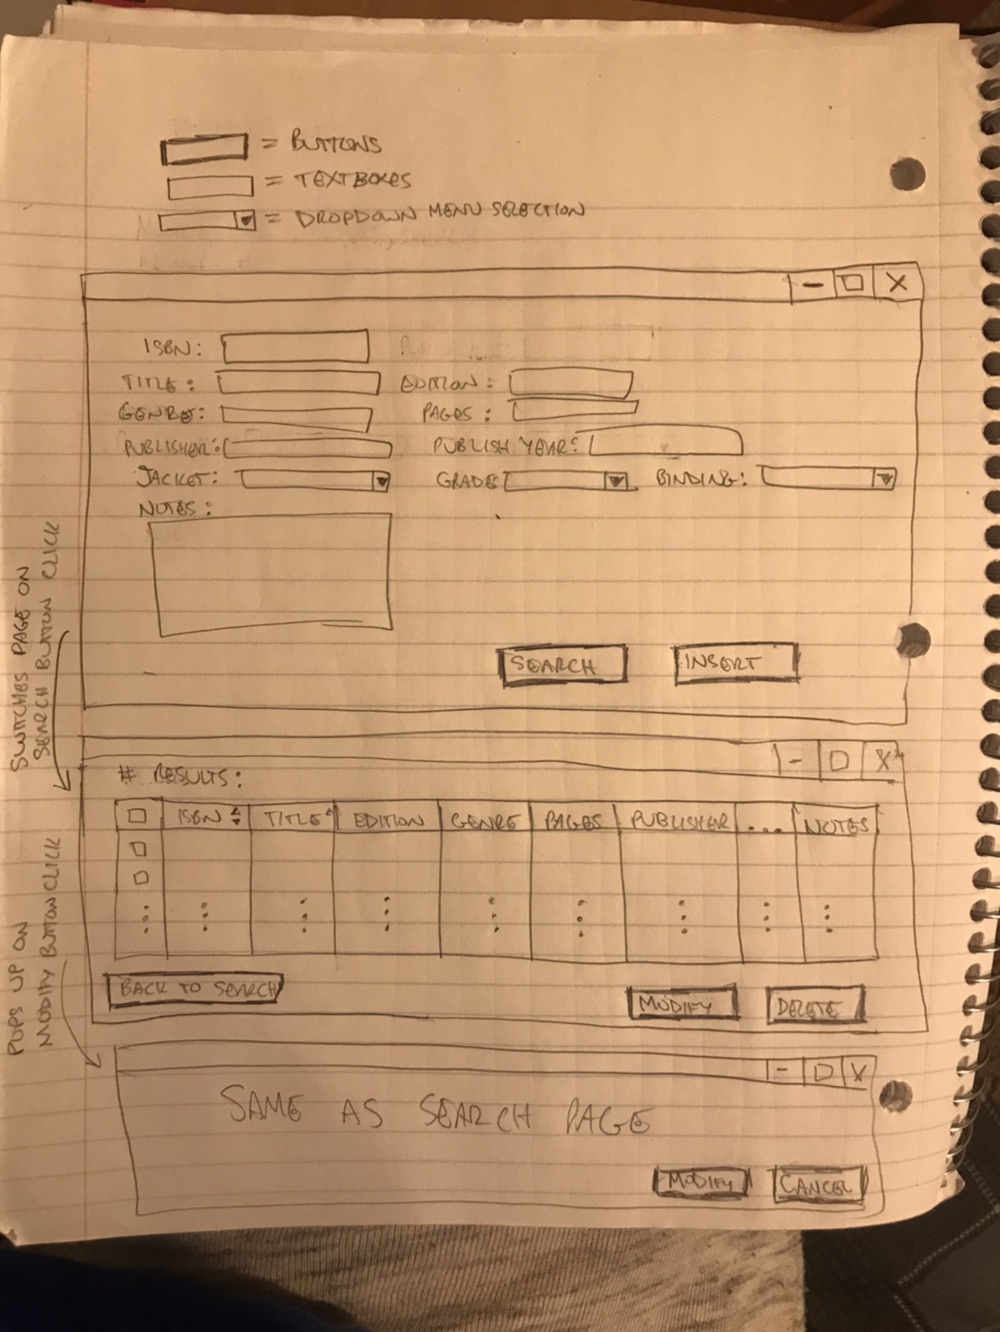 = BUTTONS
= TEXTBOXES
= DROPDOWN MENU SELECTION
- X
ISBN:
TITLE: EDITION:
GENRE: PAGES:
PUBLISHER: PUBLISH YEAR:
JACKET: GRADE BINDING:
NOTES:
SEARCH INSERT
SWITCHES PAGE ON
SEARCH BUTTON CLICK
- X
# RESULTS:
ISBN TITLE EDITION GENRE PAGES PUBLISHER ... NOTES
BACK TO SEARCH MODIFY DELETE
POPS UP ON
MODIFY BUTTON CLICK
- X
SAME AS SEARCH PAGE
MODIFY CANCEL